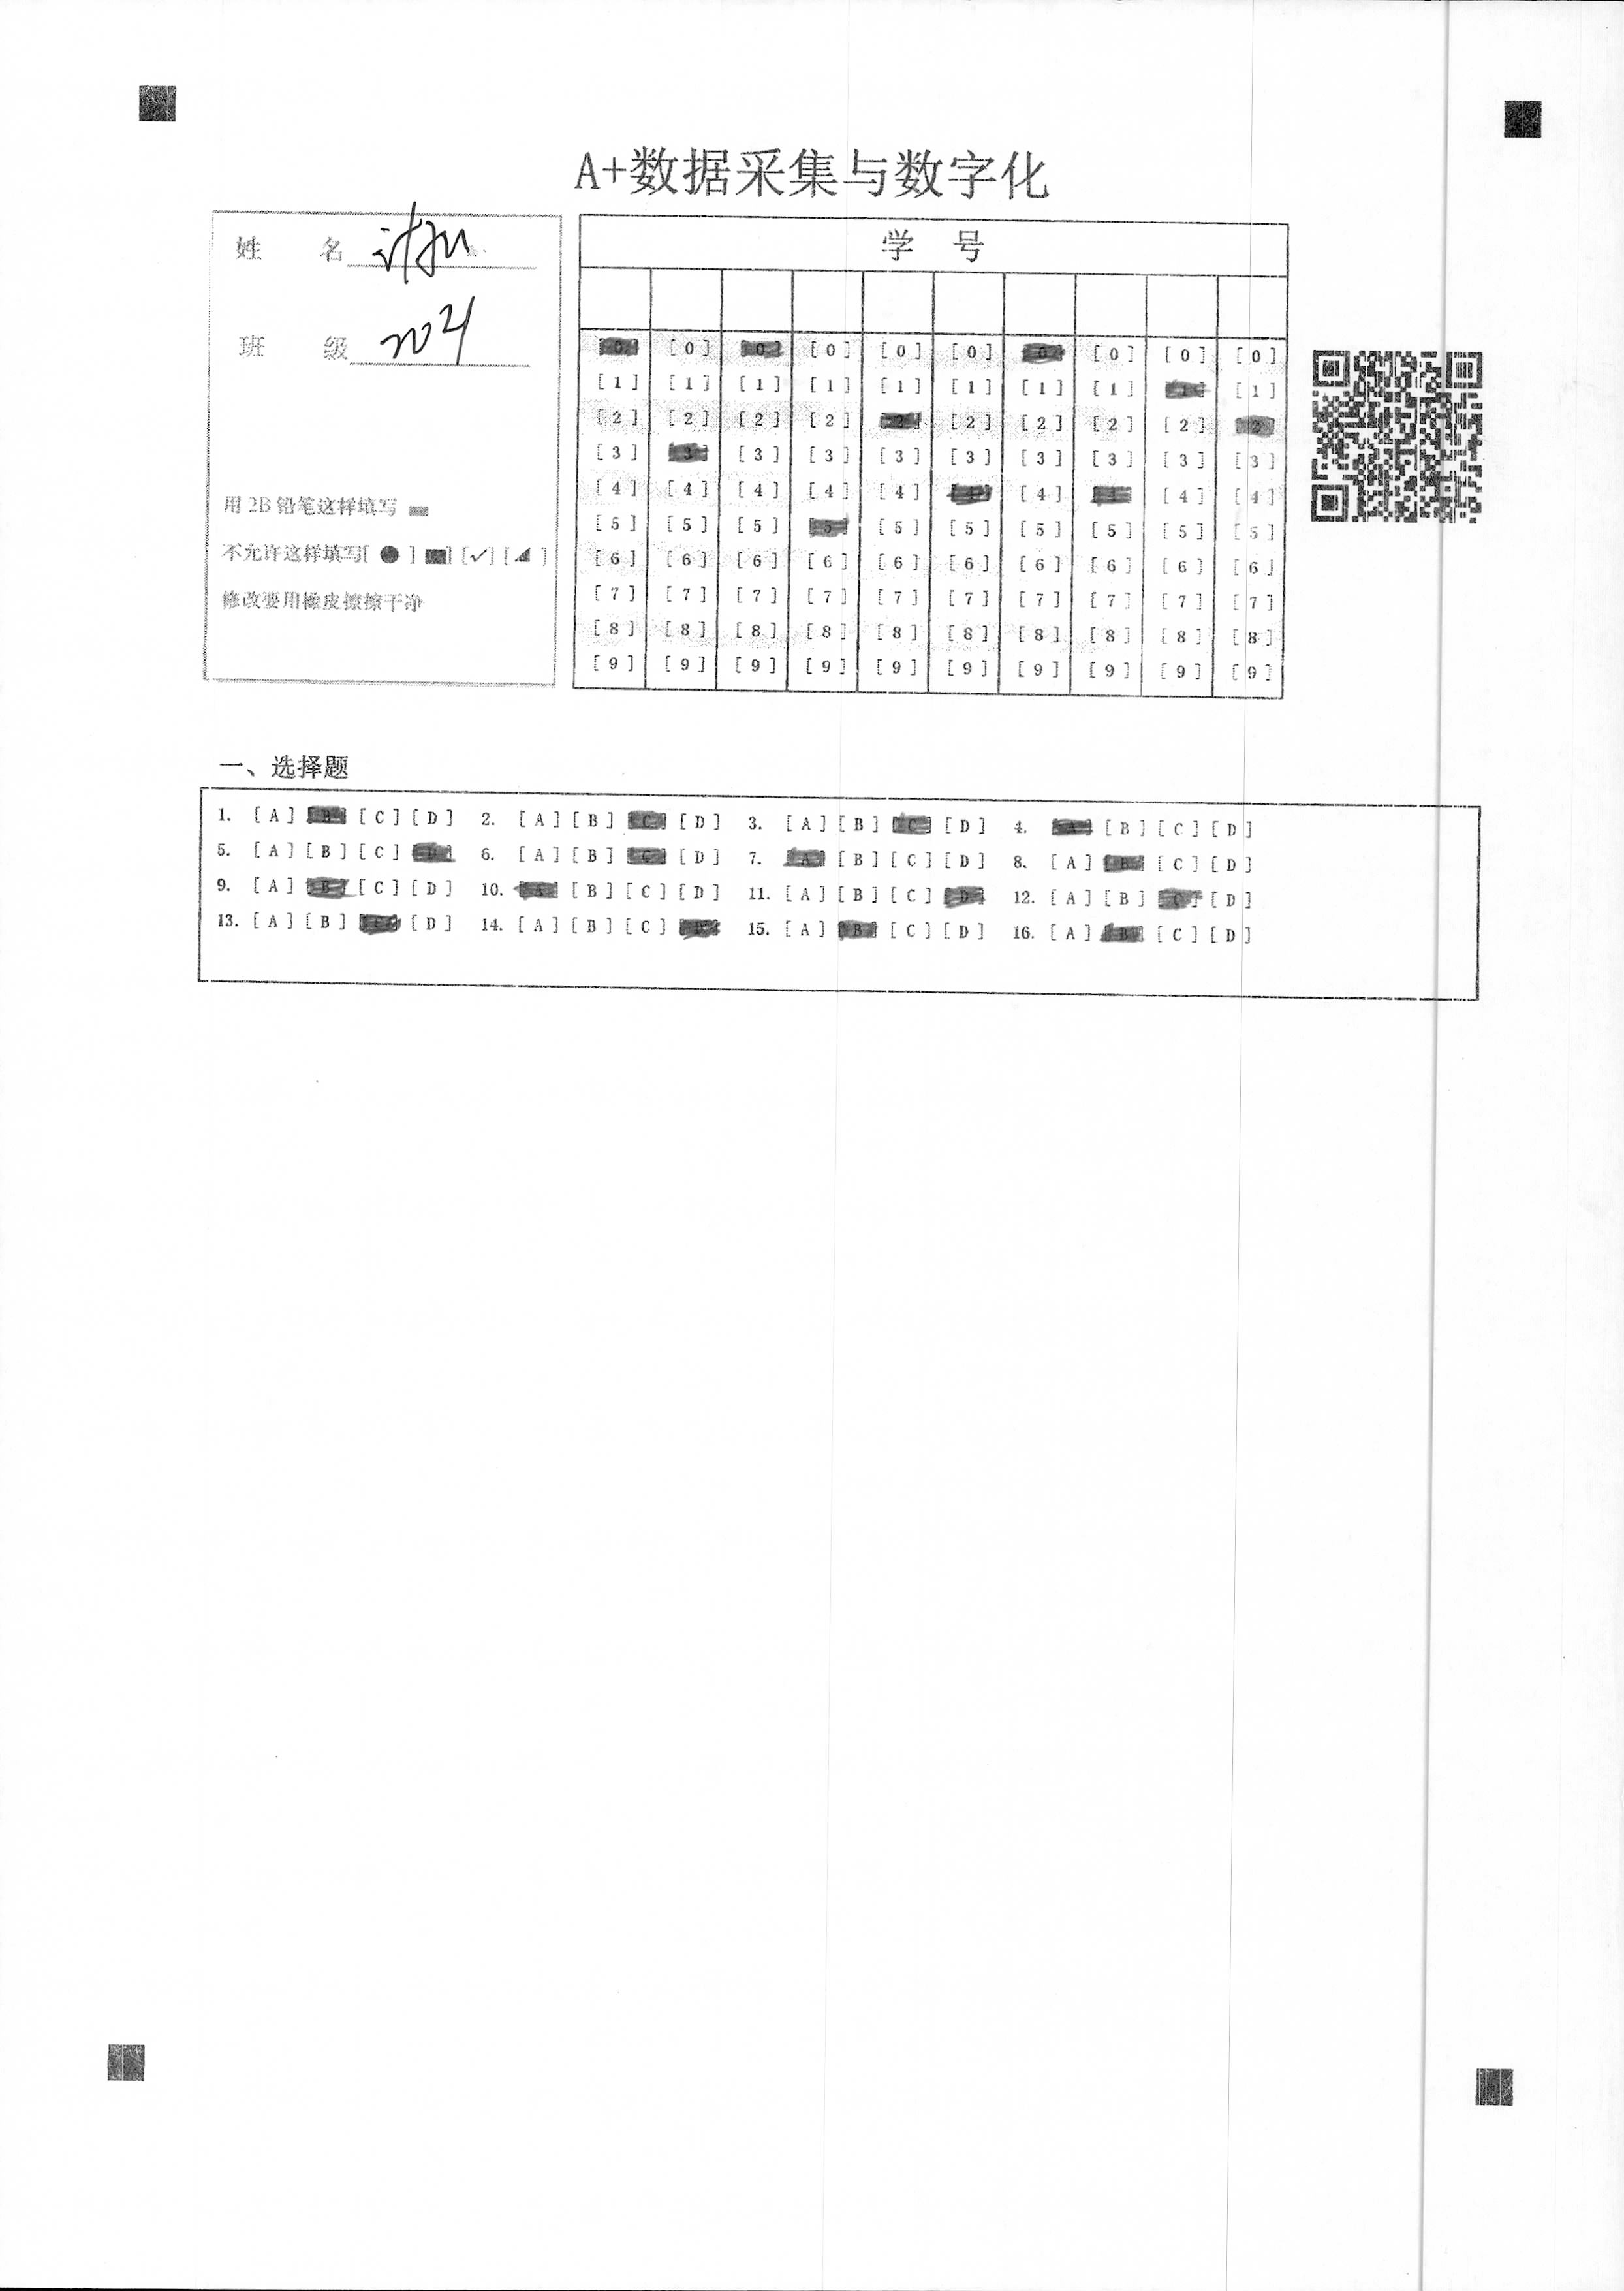 A+数据采集与数字化
姓 名
班 级
用 2B 铅笔这样填写
不允许这样填写[ ● ] [■] [✓] [◢ ]
修改要用橡皮擦擦干净
学 号
[0] [0] [0] [0] [0] [0] [0] [0] [0] [0]
[1] [1] [1] [1] [1] [1] [1] [1] [1] [1]
[2] [2] [2] [2] [2] [2] [2] [2] [2] [2]
[3] [3] [3] [3] [3] [3] [3] [3] [3] [3]
[4] [4] [4] [4] [4] [4] [4] [4] [4] [4]
[5] [5] [5] [5] [5] [5] [5] [5] [5] [5]
[6] [6] [6] [6] [6] [6] [6] [6] [6] [6]
[7] [7] [7] [7] [7] [7] [7] [7] [7] [7]
[8] [8] [8] [8] [8] [8] [8] [8] [8] [8]
[9] [9] [9] [9] [9] [9] [9] [9] [9] [9]
一、选择题
1. [A] [B] [C] [D] 2. [A] [B] [C] [D] 3. [A] [B] [C] [D] 4. [A] [B] [C] [D]
5. [A] [B] [C] [D] 6. [A] [B] [C] [D] 7. [A] [B] [C] [D] 8. [A] [B] [C] [D]
9. [A] [B] [C] [D] 10. [A] [B] [C] [D] 11. [A] [B] [C] [D] 12. [A] [B] [C] [D]
13. [A] [B] [C] [D] 14. [A] [B] [C] [D] 15. [A] [B] [C] [D] 16. [A] [B] [C] [D]